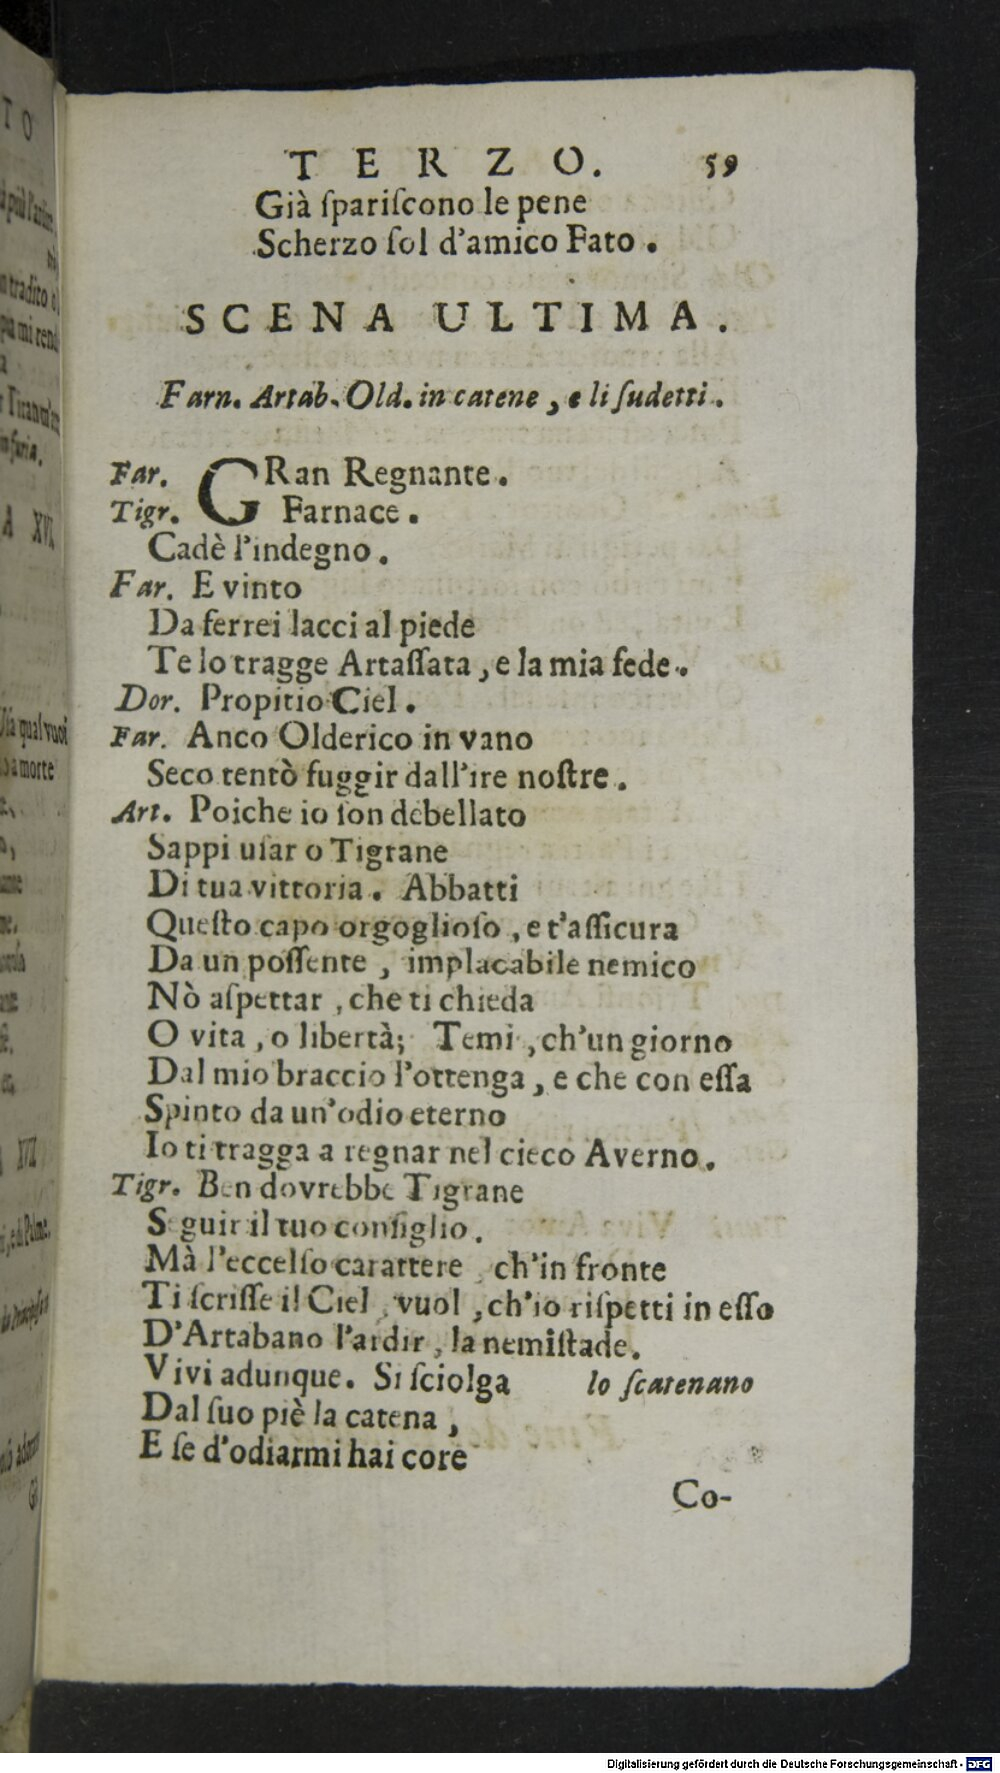 TERZO. 59
Già spariscono le pene
Scherzo sol d'amico Fato.
SCENA ULTIMA.
Farn. Artab. Old. in catene, e li sudetti.
Far. GRan Regnante.
Tigr. Farnace.
Cadè l'indegno.
Far. E vinto
Da ferrei lacci al piede
Te lo tragge Artassata, e la mia fede.
Dor. Propitio Ciel.
Far. Anco Olderico in vano
Seco tentò fuggir dall'ire nostre.
Art. Poiche io son debellato
Sappi usar o Tigrane
Di tua vittoria. Abbatti
Questo capo orgoglioso, e t'assicura
Da un possente, implacabile nemico
Nò aspettar, che ti chieda
O vita, o libertà; Temi, ch'un giorno
Dal mio braccio l'ottenga, e che con essa
Spinto da un'odio eterno
Io ti tragga a regnar nel cieco Averno.
Tigr. Ben dovrebbe Tigrane
Seguir il tuo consiglio.
Mà l'eccelso carattere, ch'in fronte
Ti scrisse il Ciel, vuol, ch'io rispetti in esso
D'Artabano l'ardir, la nemistade.
Vivi adunque. Si sciolga lo scatenano
Dal suo piè la catena,
E se d'odiarmi hai core
Co-
Digitalisierung gefördert durch die Deutsche Forschungsgemeinschaft - DFG